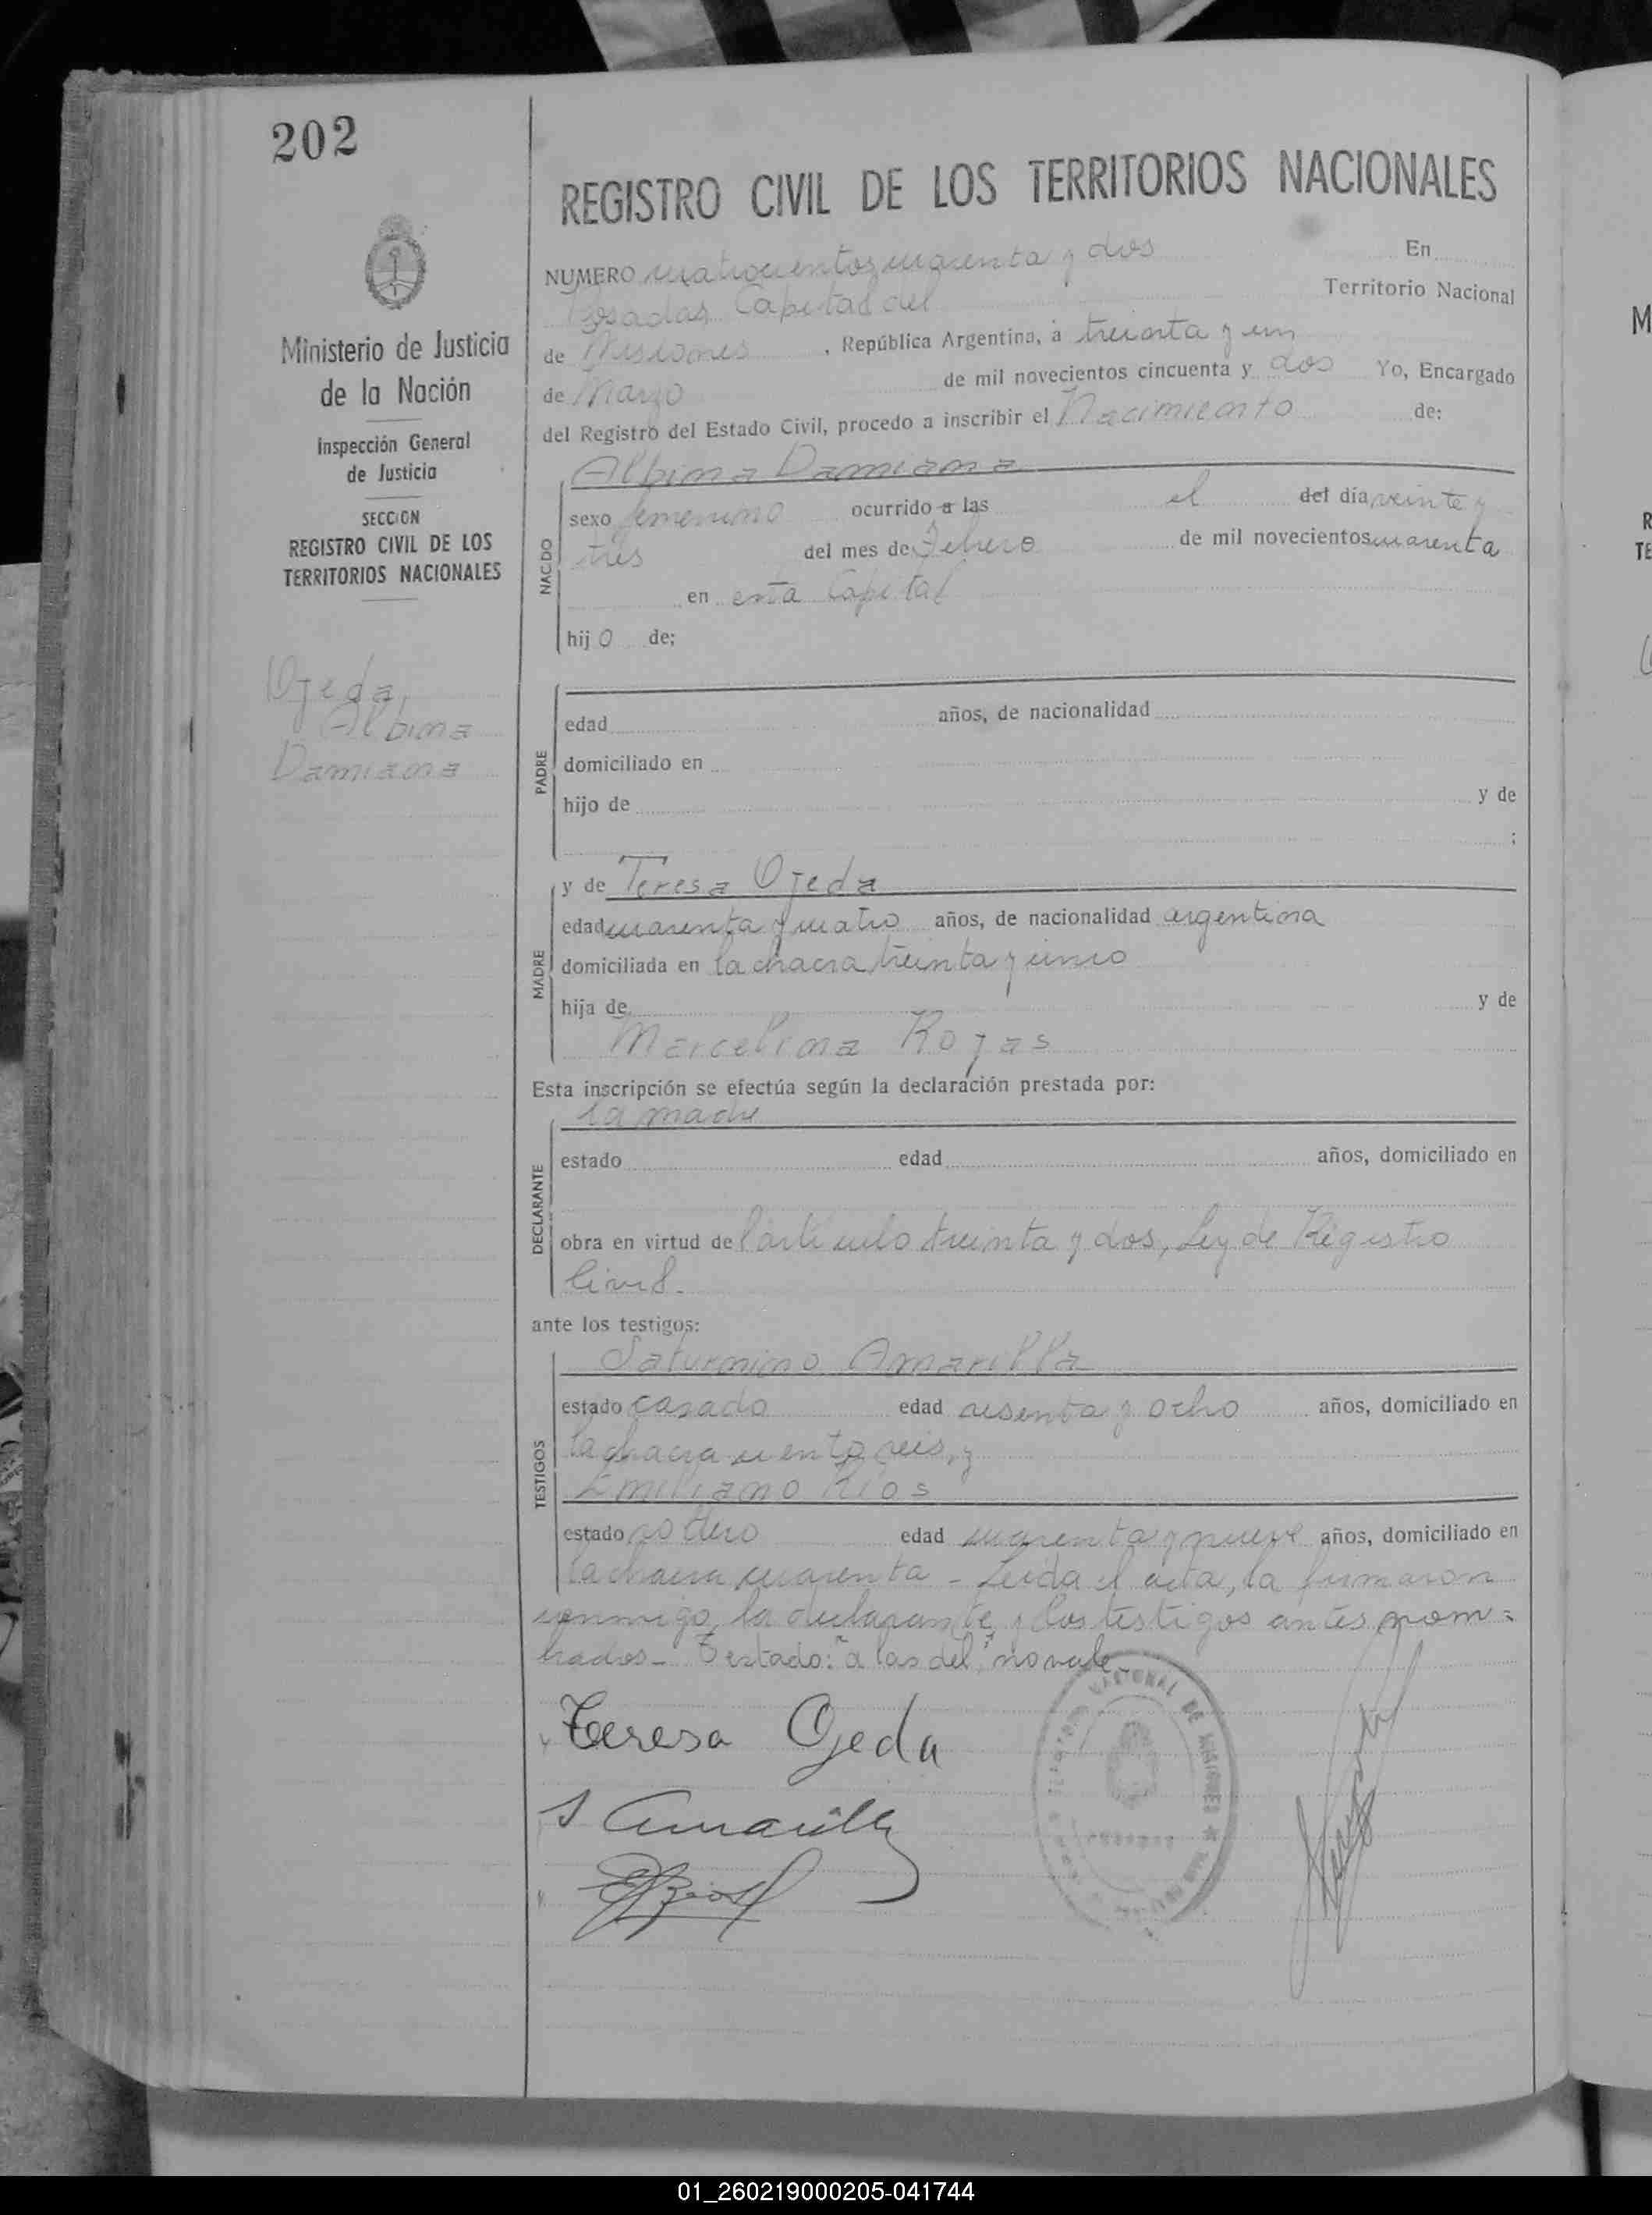 202
REGISTRO CIVIL DE LOS TERRITORIOS NACIONALES
Ministerio de Justicia
de la Nación
Inspección General
de Justicia
SECCION
REGISTRO CIVIL DE LOS
TERRITORIOS NACIONALES
Ojeda,
Albina
Damiana
NUMERO cuatrocientos cuarenta y dos En
Posadas Capital del Territorio Nacional
de Misiones, República Argentina, a treinta y un
de Marzo de mil novecientos cincuenta y dos Yo, Encargado
del Registro del Estado Civil, procedo a inscribir el Nacimiento de:
NACIDO
Albina Damiana
sexo femenino ocurrido a las el del día veinte y
tres del mes de Febrero de mil novecientos cuarenta
en esta Capital
hijo de;
PADRE
edad años, de nacionalidad
domiciliado en
hijo de y de
;
MADRE
y de Teresa Ojeda
edad cuarenta y cuatro años, de nacionalidad argentina
domiciliada en la chacra treinta y cinco
hija de y de
Marcelina Rojas
Esta inscripción se efectúa según la declaración prestada por:
DECLARANTE
la madre
estado edad años, domiciliado en
obra en virtud del artículo treinta y dos, Ley de Registro
Civil.
ante los testigos:
TESTIGOS
Saturnino Amarilla
estado casado edad sesenta y ocho años, domiciliado en
la chacra ciento seis, y
Emiliano Rios
estado soltero edad cuarenta y nueve años, domiciliado en
la chacra cuarenta - Leída el acta, la firmaron
conmigo, la declarante y los testigos antes nom=
brados - Testado: "a las del" no vale -
Teresa Ojeda
S Amarilla
ERios
NACIONAL DE MISIONES
01_260219000205-041744